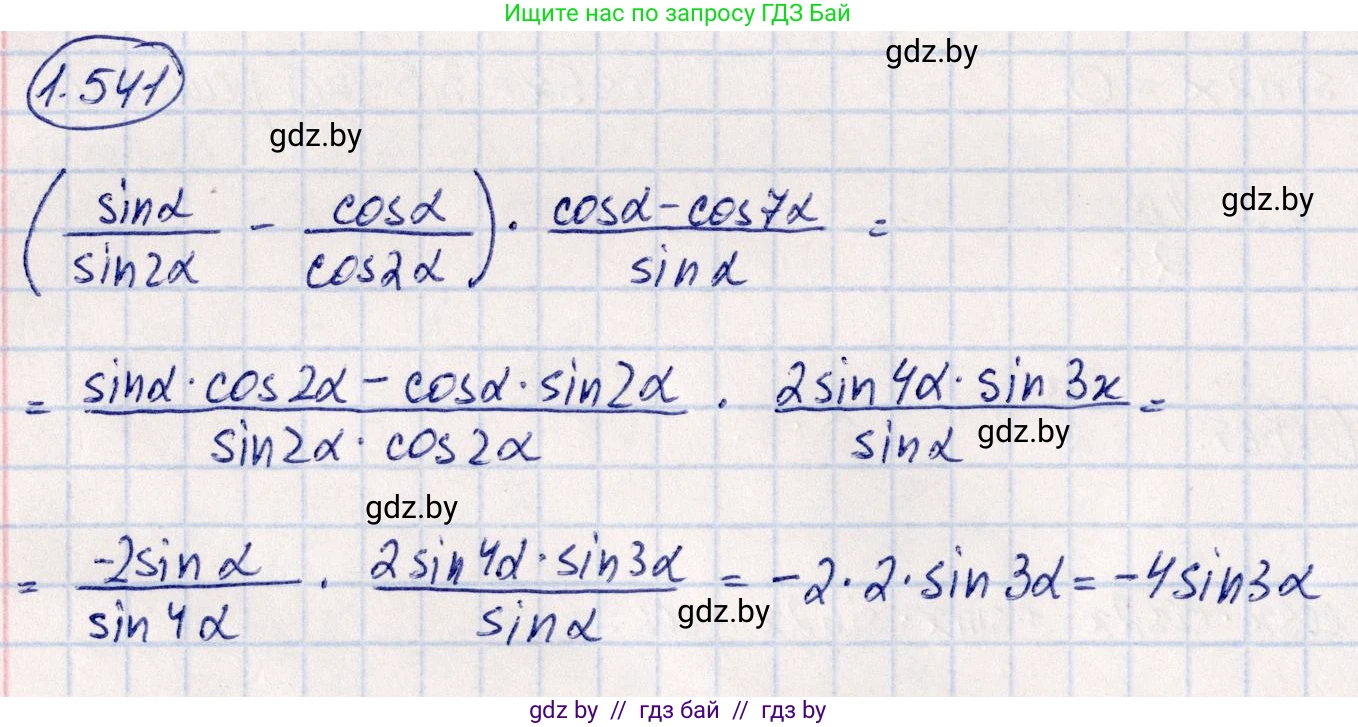 Ищите нас по запросу ГДЗ Бай
gdz.by
1.541
gdz.by
gdz.by
(sinα/sin2α - cosα/cos2α) · (cosα - cos7α)/sinα =
= (sinα · cos2α - cosα · sin2α)/(sin2α · cos2α) · (2sin4α · sin3x)/sinα =
gdz.by
gdz.by
= -2sinα/sin4α · (2sin4α · sin3α)/sinα = -2 · 2 · sin3α = -4sin3α
gdz.by
gdz by // гдз бай // гдз by